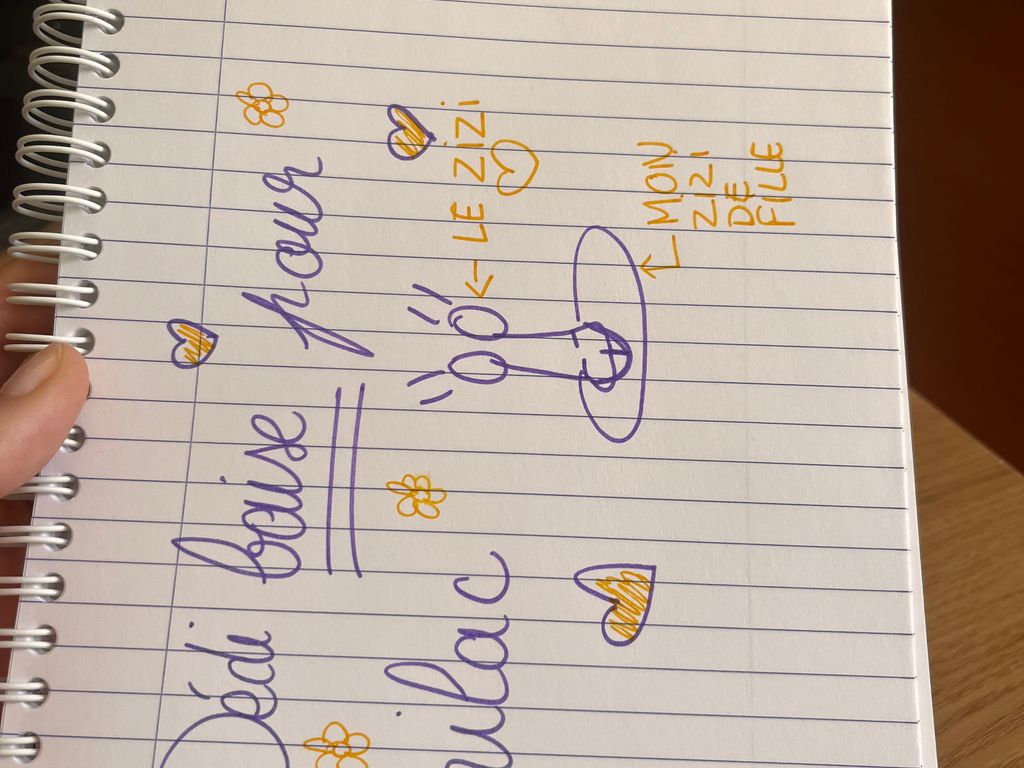 Dédi baise pour
LE ZIZI
MON
ZIZI
DE
FILLE